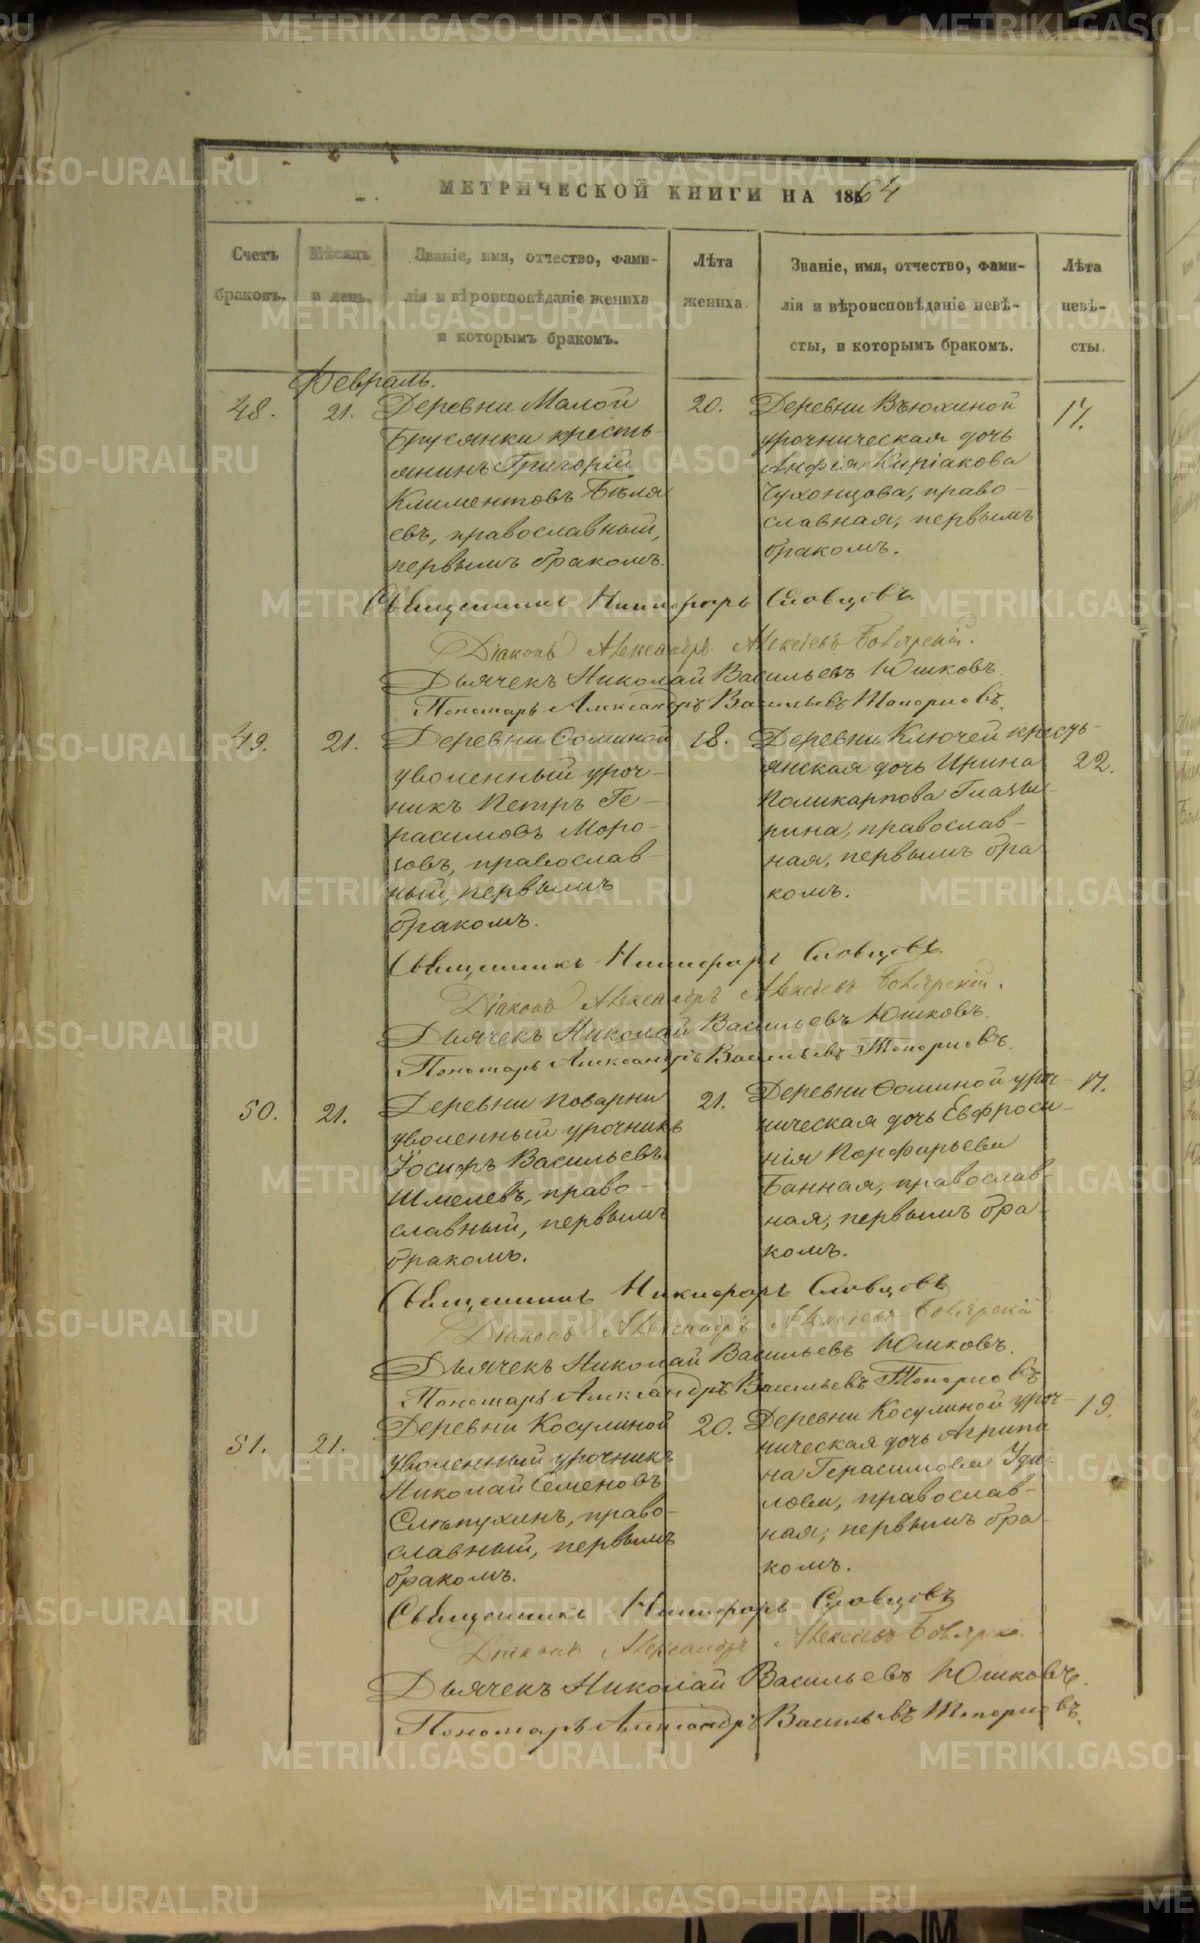 МЕТРИЧЕСКОЙ КНИГИ НА 1864
Счетъ браковъ.
Мѣсяцъ и день.
Званіе, имя, отчество, фами-
лія и вѣроисповѣданіе жениха
и которымъ бракомъ.
Лѣта
жениха.
Званіе, имя, отчество, фами-
лія и вѣроисповѣданіе невѣ-
сты, и которымъ бракомъ.
Лѣта
невѣ-
сты.
Февраль.
48.
21.
Деревни Малой
Брусянки кресть-
янинъ Григорій
Климентовъ Бѣля
евъ, православный,
первымъ бракомъ.
20.
Деревни Вьюхиной
урочническая дочь
Анфія Киріакова
Чухонцова, право-
славная, первымъ
бракомъ.
17.
Священникъ Никифоръ Словцовъ.
Діаконъ Александръ Алексѣевъ
Дьячекъ Николай Васильевъ Юшковъ.
Пономарь Александръ Васильевъ Топорковъ.
49.
21.
Деревни Ѳоминой
уволенный уроч-
никъ Петръ Ге-
расимовъ Моро-
зовъ, православ-
ный, первымъ
бракомъ.
18.
Деревни Ключей кресть-
янская дочь Ирина
Поликарпова Глазы-
рина, православ-
ная, первымъ бра
комъ.
22.
Священникъ Никифоръ Словцовъ.
Діаконъ Александръ Алексѣевъ
Дьячекъ Николай Васильевъ Юшковъ.
Пономарь Александръ Васильевъ Топорковъ.
50.
21.
Деревни Поварни
уволенный урочникъ
Іосифъ Васильевъ
Шмелевъ, право-
славный, первымъ
бракомъ.
21.
Деревни Ѳоминой уроч-
ническая дочь Евфроси-
нія Порфирьева
Банная, православ-
ная, первымъ бра-
комъ.
17.
Священникъ Никифоръ Словцовъ
Діаконъ Александръ Алексѣевъ
Дьячекъ Николай Васильевъ Юшковъ.
Пономарь Александръ Васильевъ Топорковъ
51.
21.
Деревни Косулиной
уволенный урочникъ
Николай Семеновъ
Слѣпухинъ, право-
славный, первымъ
бракомъ.
20.
Деревни Косулиной уроч-
ническая дочь Агрипи
на Герасимова Уди-
лова, православ-
ная, первымъ бра-
комъ.
19.
Священникъ Никифоръ Словцовъ
Діаконъ Александръ Алексѣевъ
Дьячекъ Николай Васильевъ Юшковъ.
Пономарь Александръ Васильевъ Топорковъ.
METRIKI.GASO-URAL.RU